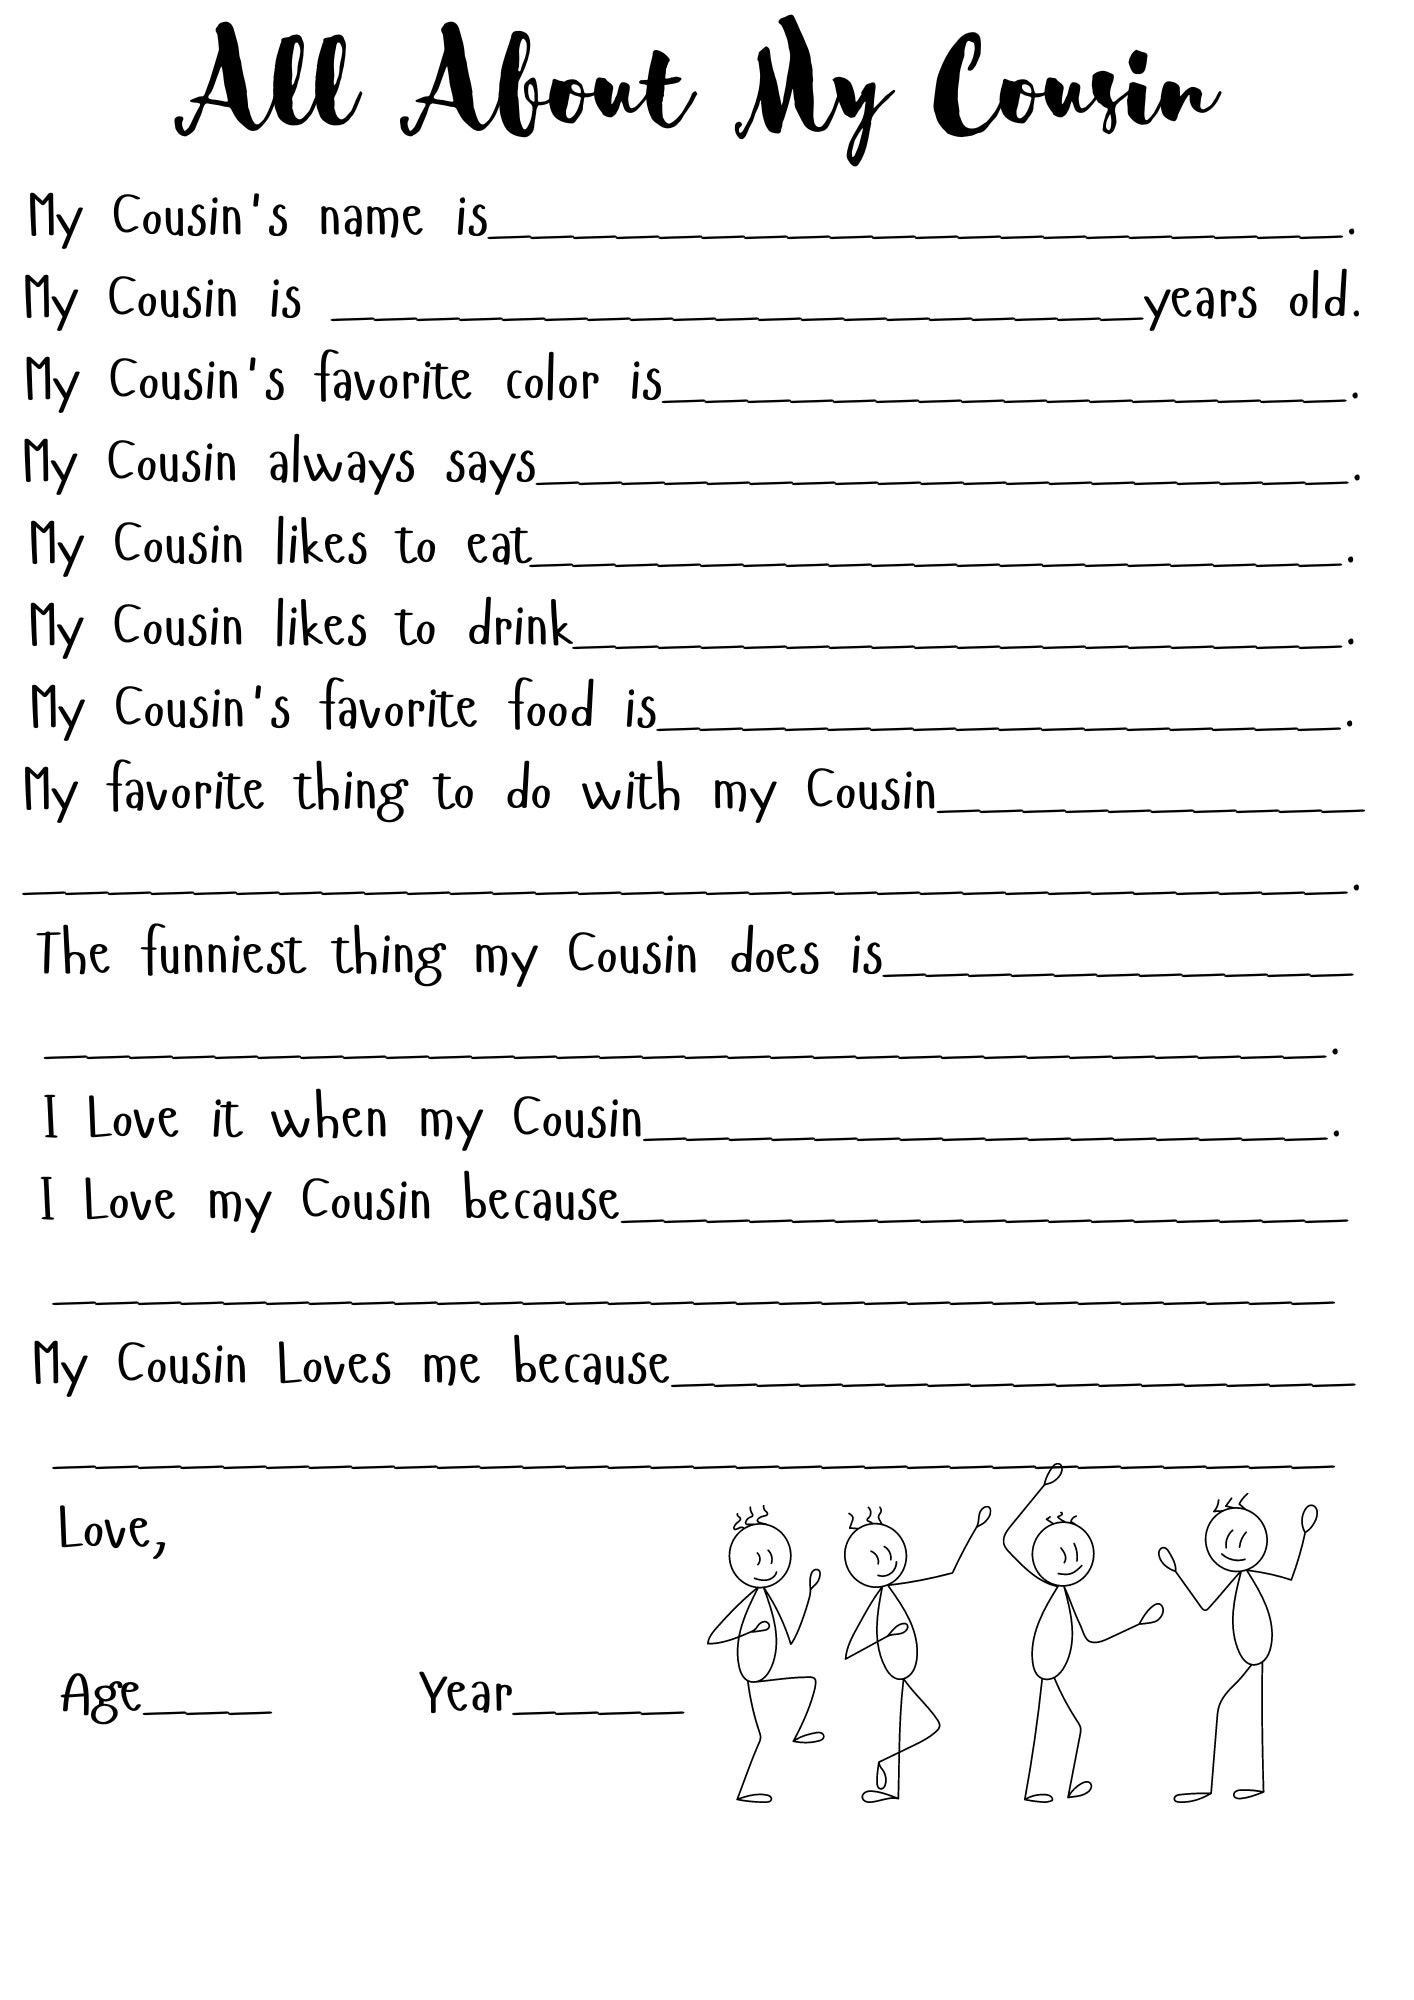 All About My Cousin
My Cousin's name is____________________.
My Cousin is ___________________years old.
My Cousin's favorite color is________________.
My Cousin always says___________________.
My Cousin likes to eat___________________.
My Cousin likes to drink__________________.
My Cousin's favorite food is________________.
My favorite thing to do with my Cousin__________
_______________________________.
The funniest thing my Cousin does is___________
______________________________.
I Love it when my Cousin________________.
I Love my Cousin because_________________
______________________________
My Cousin Loves me because________________
______________________________
Love,
Age___ Year____